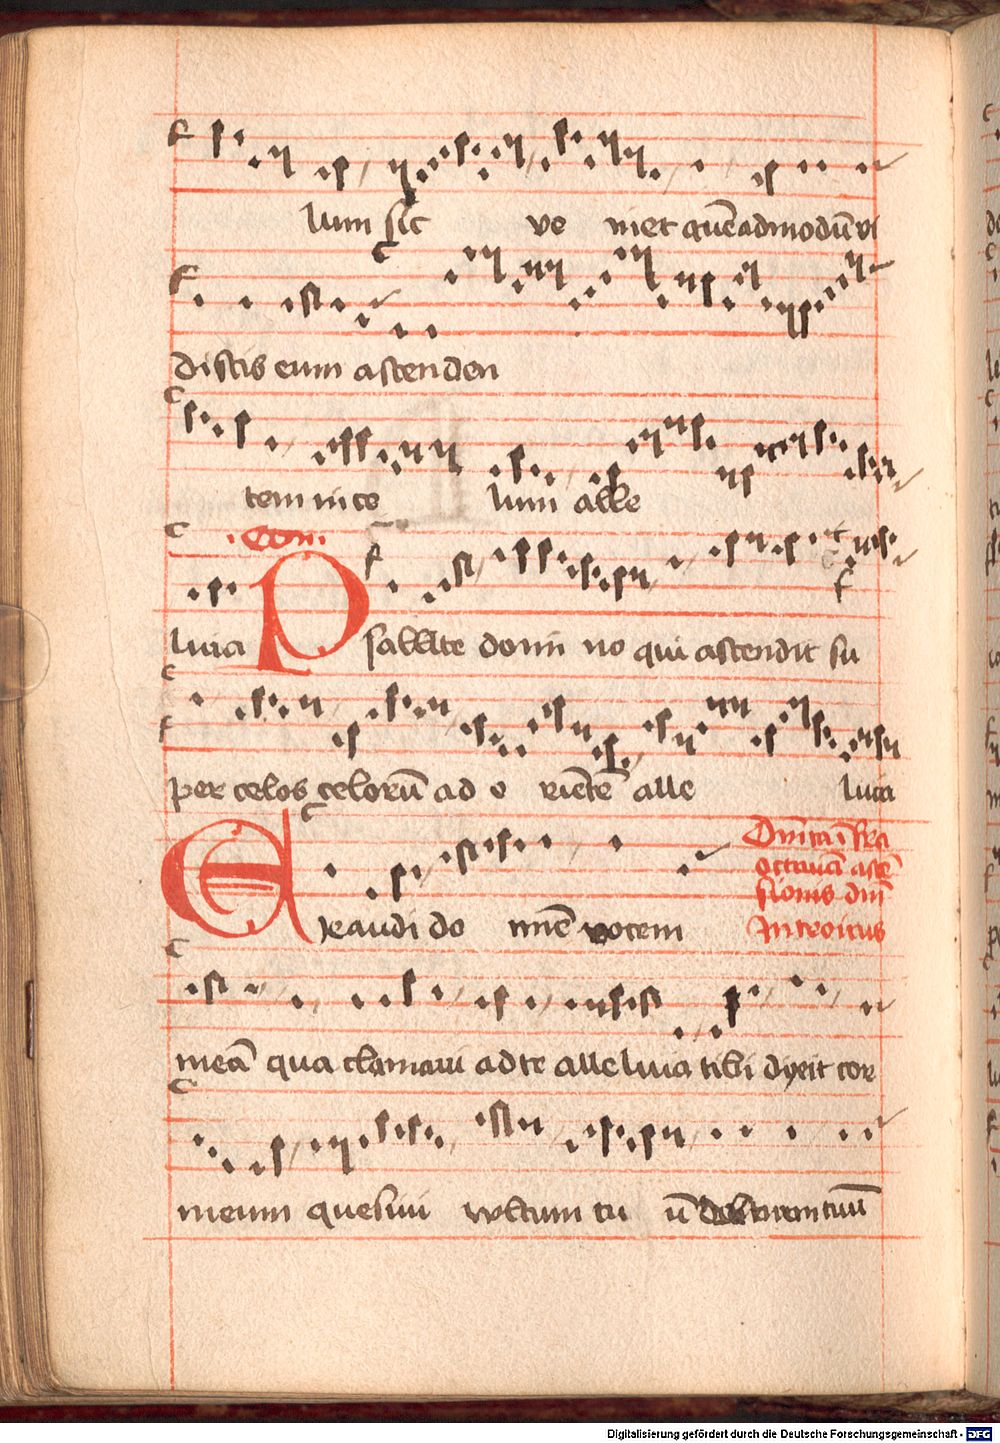 lum sic ve niet quē admodū vi
distis eum ascenden
tem in ce lum alle
.Com.
luia Psallite domi no qui ascendit su
per celos celorū ad o riētē alle luia
Exaudi do minē vocem
Dn̄ica ī fra
octauā ascē
sionis dn̄i
Introitus
meā qua clamaui ad te alleluia tibi dixit cor
meum quesiui vultum tu ū tuū
Digitalisierung gefördert durch die Deutsche Forschungsgemeinschaft - DFG